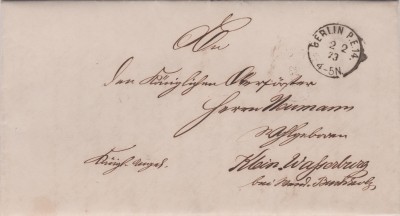 BERLIN P.E.14.
2 2
73
4-5N.
An
den Königlichen Oberförster
Herrn Neumann
Wohlgeboren
Klein Wasserburg
Königl. Angel.
bei Märk. Buchholz